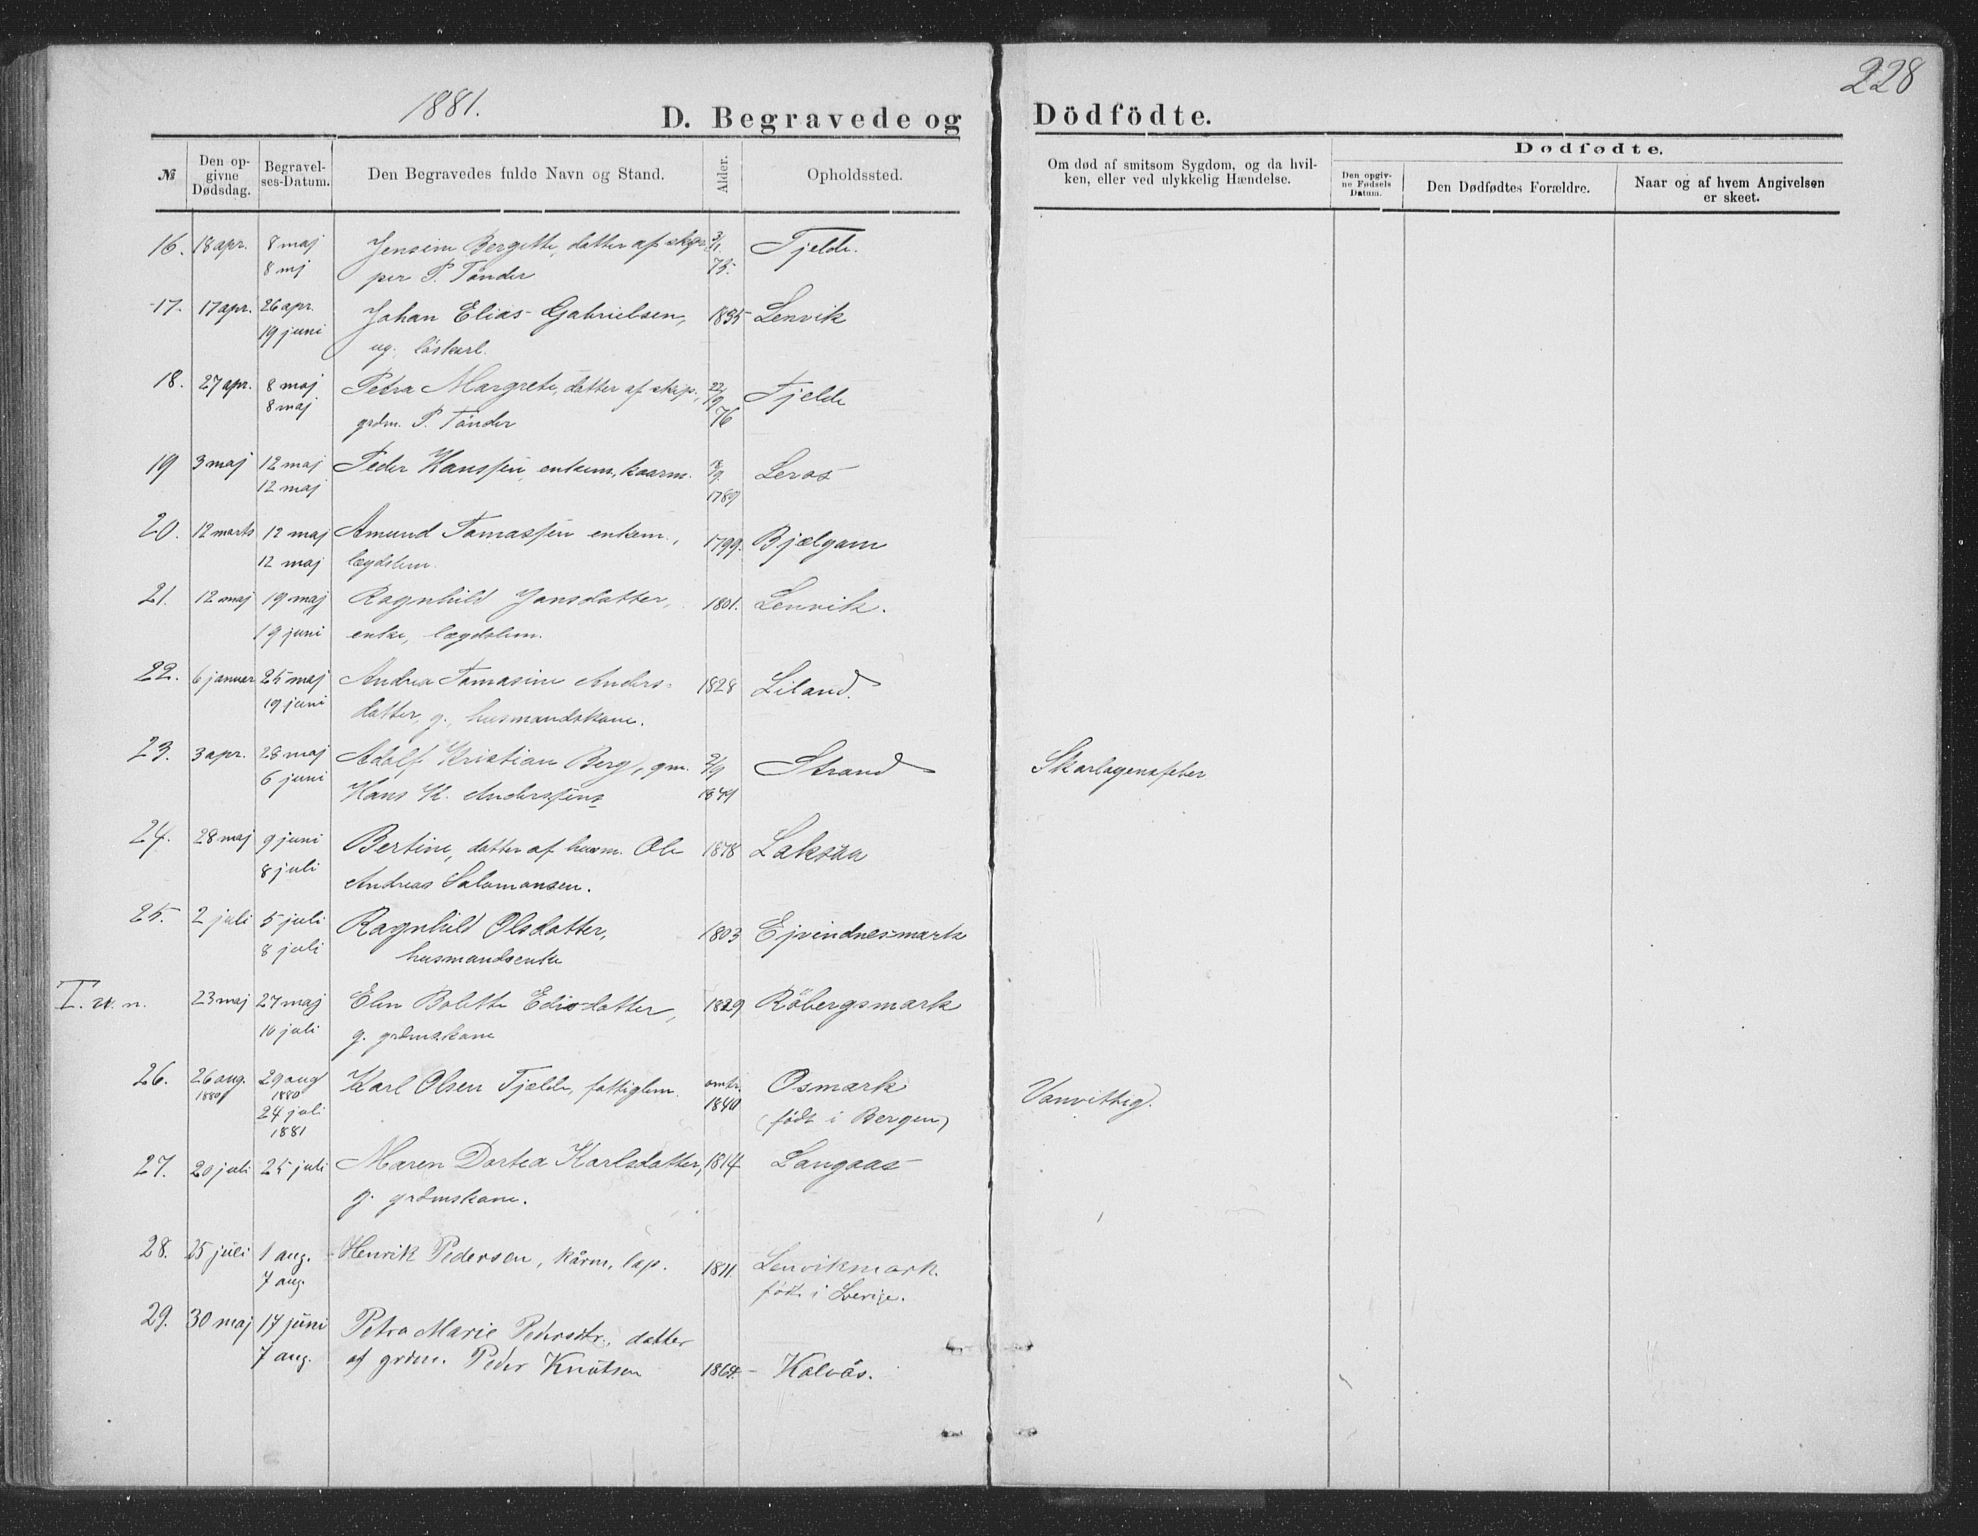 228
1881.
D. Begravede og Dödfödte.
№
Den op-
givne
Dødsdag.
Begravel-
ses-Datum.
Den Begravedes fulde Navn og Stand.
Alder.
Opholdssted.
Om død af smitsom Sygdom, og da hvil-
ken, eller ved ulykkelig Hændelse.
Dødfødte.
Den opgiv-
ne Fødsels
Datum.
Den Dødfødtes Forældre.
Naar og af hvem Angivelsen
er skeet.
16. 18 apr. 8 maj Jensine Bergitte, datter af skip- 3/1 Tjelde.
8 mj per P. Tønder 75.
17. 17 apr. 26 apr. Johan Elias Gabrielsen, 1835 Lenvik
19 juni ug. löskarl.
18. 27 apr. 8 maj Petra Margrete, datter af skip., 22/9 Tjelde
8 maj grdm. P. Tönder 76
19 3 maj 12 maj Peder Hanssen, enkem, kaarm. Leros
12 maj 1789
20. 12 marts 12 maj Amund Tomassen enkem., 1799. Bjælgam
12 maj lægdslem.
21. 12 maj 19 maj Ragnhild Jonsdatter, 1801. Lenvik.
19 juni enke, lægdslem.
22. 6 januar 25 maj Andrea Tomasine Anders- 1828 Liland.
19 juni datter, g., husmandskone.
23. 3 apr. 28 maj Adolf Kristian Berg, gm. 2/9 Strand Skarlagensfeber
6 juni Hans K. Anderssens 1849
24. 28 maj 9 juni Bertine, datter af husm. Ole 1878 Laksaa
8 juli Andreas Salomonsen.
25. 2 juli 5 juli Ragnhild Olsdatter, 1803 Ejvindnesmark
8 juli husmandsenke
I. u. n. 23 maj 27 maj Elen Bolette Edisdatter, 1829 Röbergsmark
10 juli g. grdmskone
26. 26 aug. 29 aug Karl Olsen Tjelde, fattiglem. omtr. Osmark Vanvittig.
1880 1880 1840 (født i Bergen)
24 juli
1881
27. 20 juli 25 juli Maren Dortea Karlsdatter, 1814 Langaas
g. grdmskone.
28. 25 juli 1 aug. Henrik Pedersen, kårm, lap. 1811. Lenvikmark.
7 aug. født i Sverige.
29. 30 maj 17 juni Petra Marie Pedersdtr., datter
7 aug. af grdm. Peder Knutsen 1864 - Kalvås.